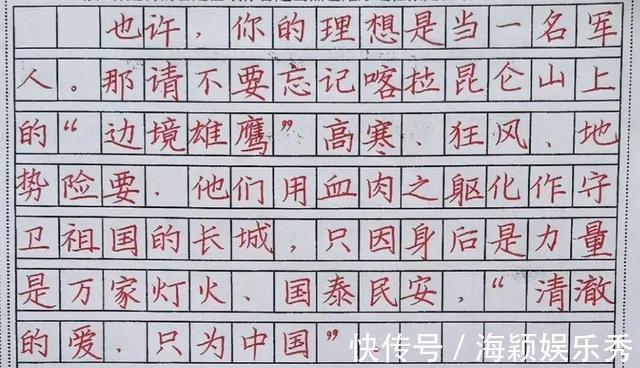 也许，你的理想是当一名军
人。那请不要忘记喀拉昆仑山上
的“边境雄鹰”高寒、狂风、地
势险要，他们用血肉之躯化作守
卫祖国的长城，只因身后是力量
是万家灯火、国泰民安，“清澈
的爱，只为中国”、
快传号／海颖娱乐秀